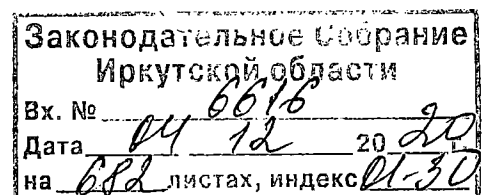 Законодательное Собрание
Иркутской области
Вх. № 6616
Дата 04 12 2020 г.
на 682 листах, индекс 01-30